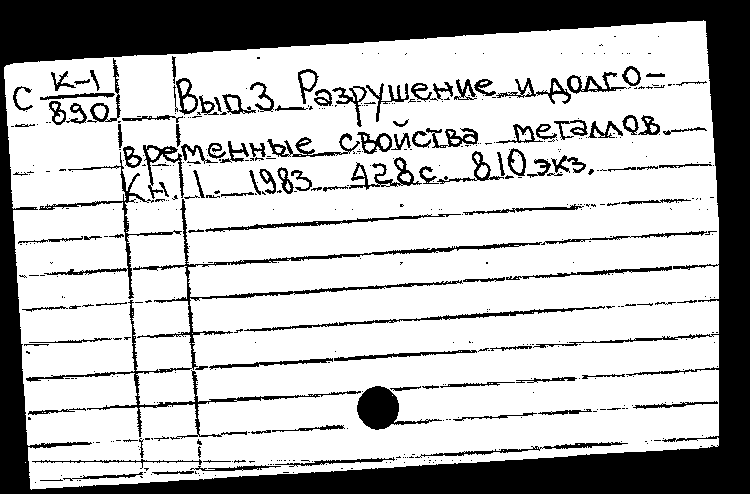 С К-1/890 Вып.3 Разрушение и долго-
временные свойства металлов.
Кн. 1. 1983 428с. 810экз.